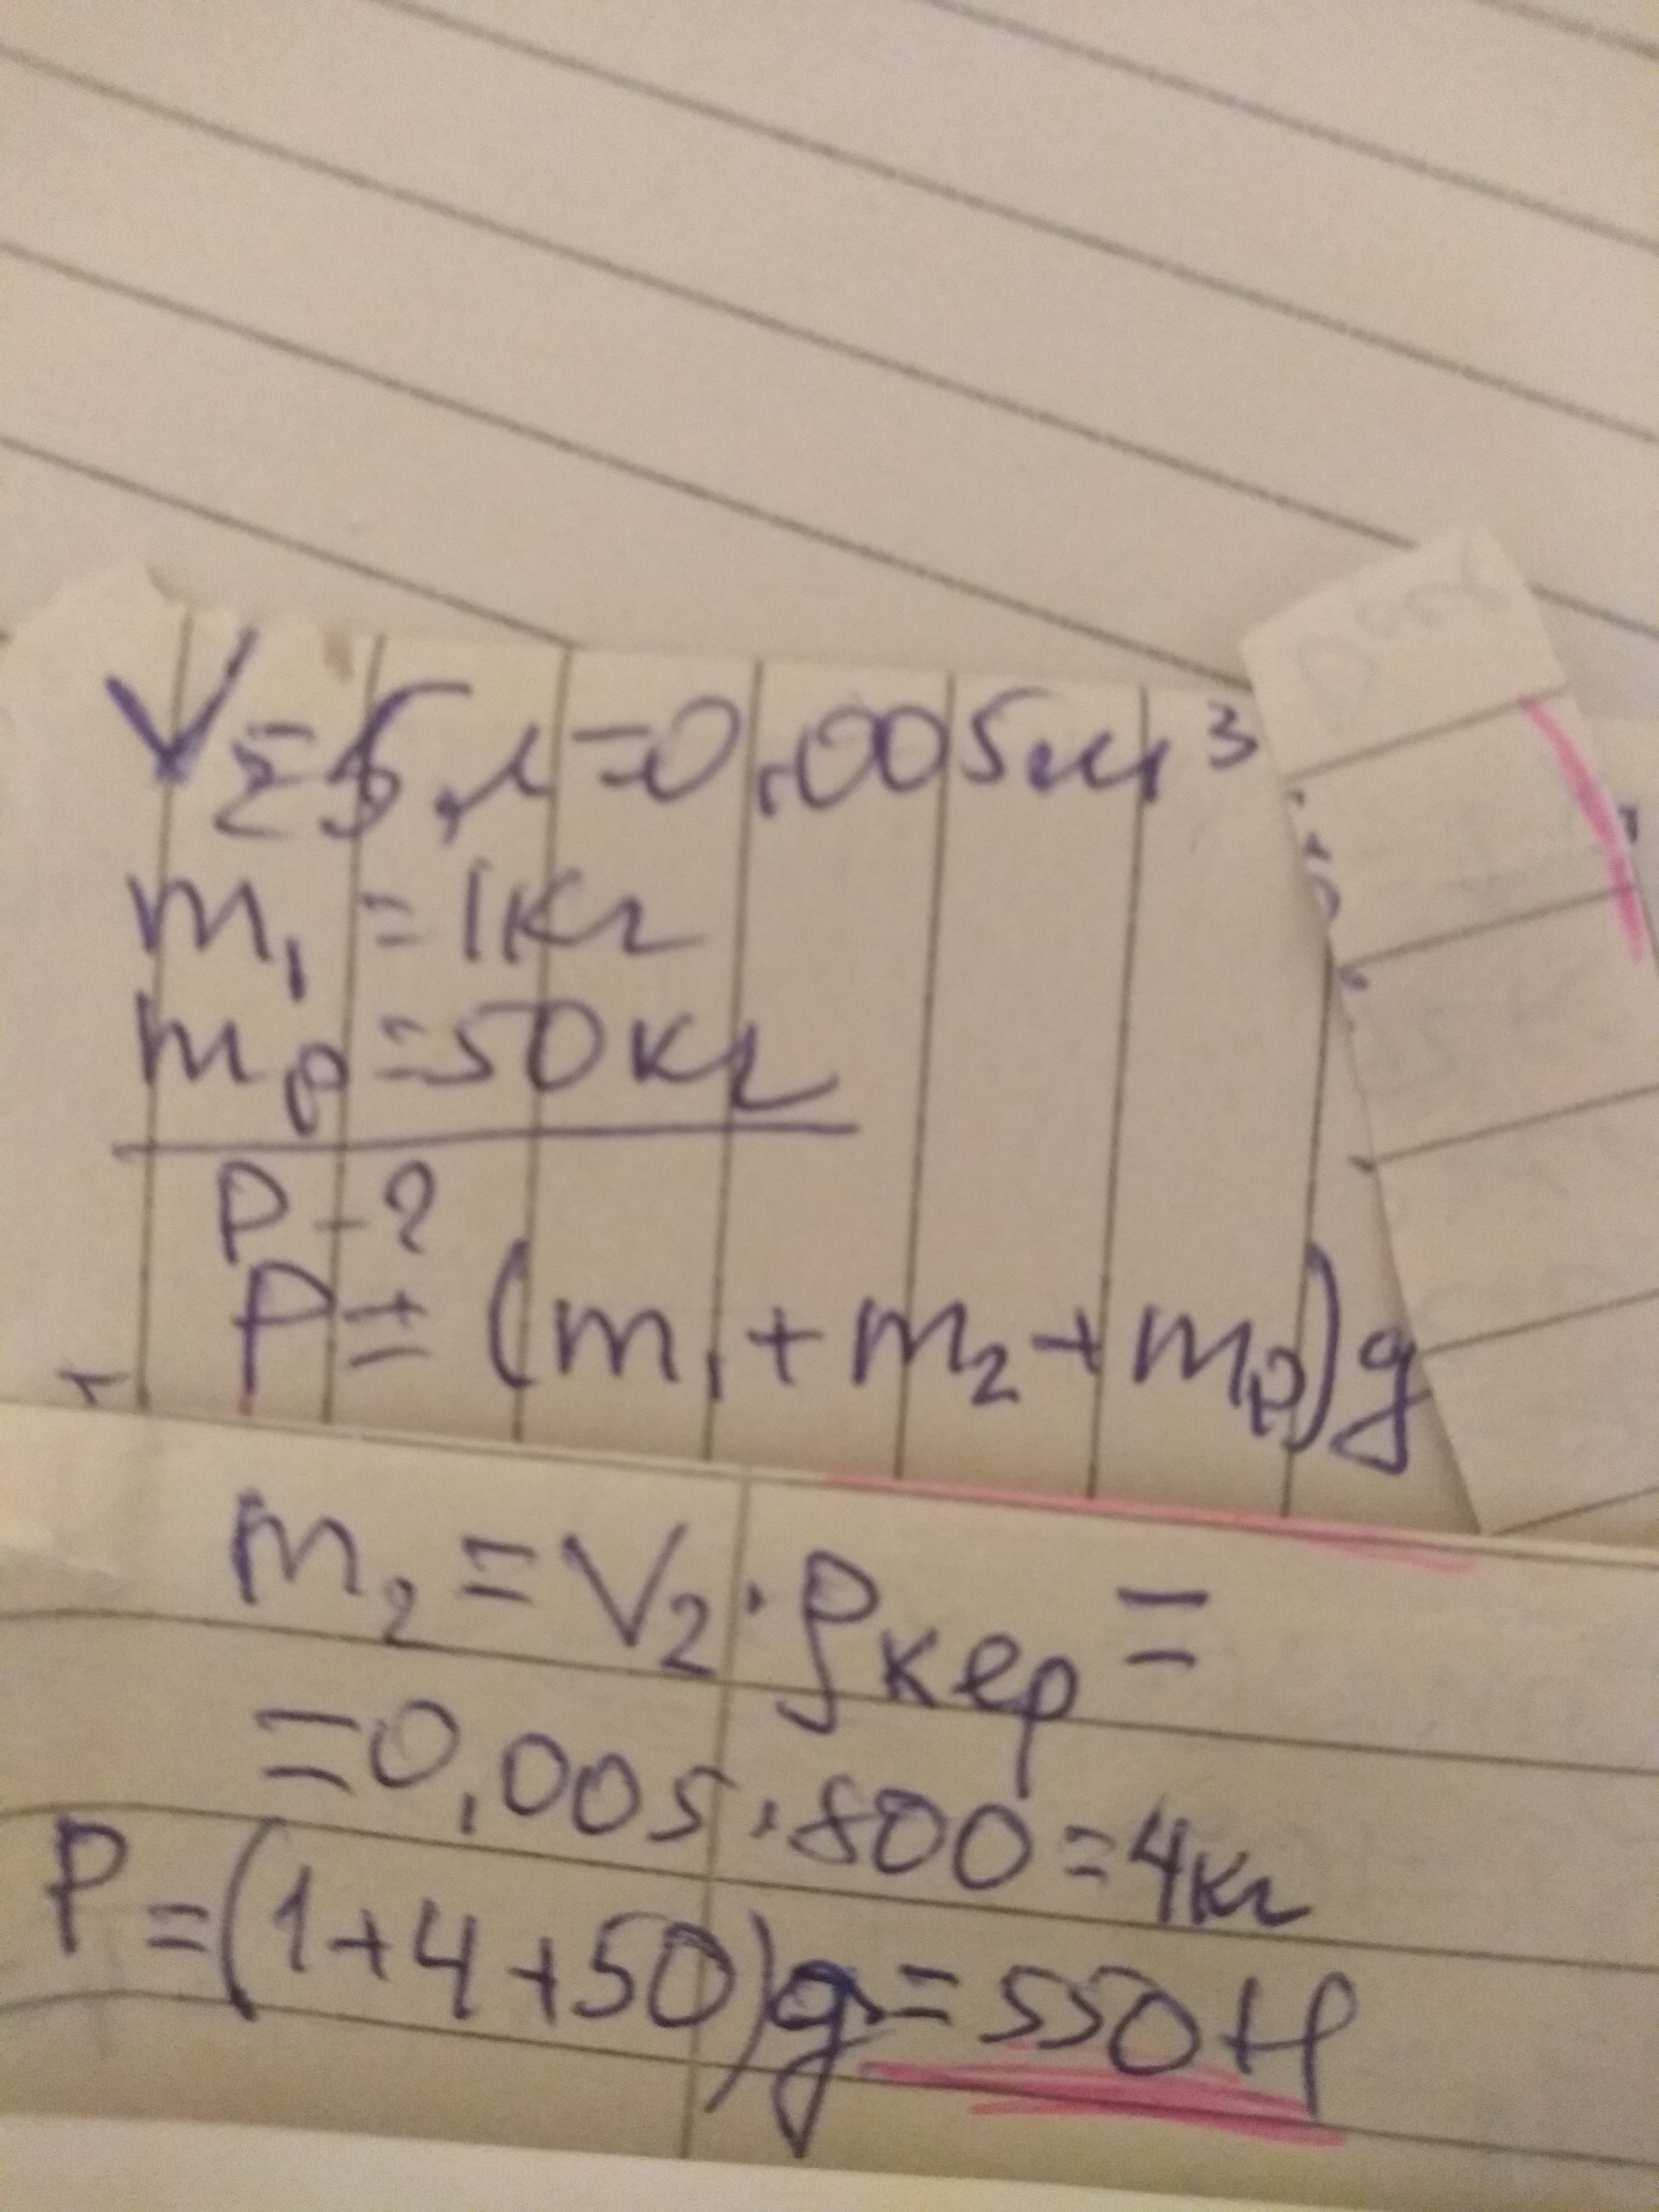 V = 5 л = 0,005 м³
m₁ = 1кг
mр = 50кг
P - ?
P = (m₁ + m₂ + mр)g
m₂ = V₂ · ρкер =
= 0,005 · 800 = 4кг
P = (1 + 4 + 50)g = 550H